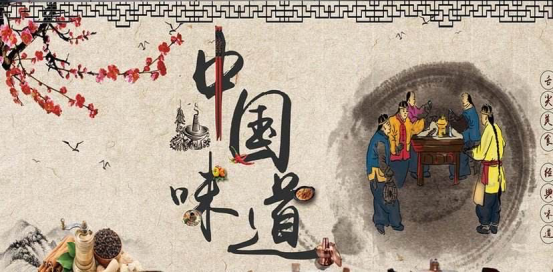 中国
味道
舌尖美食
经典味道